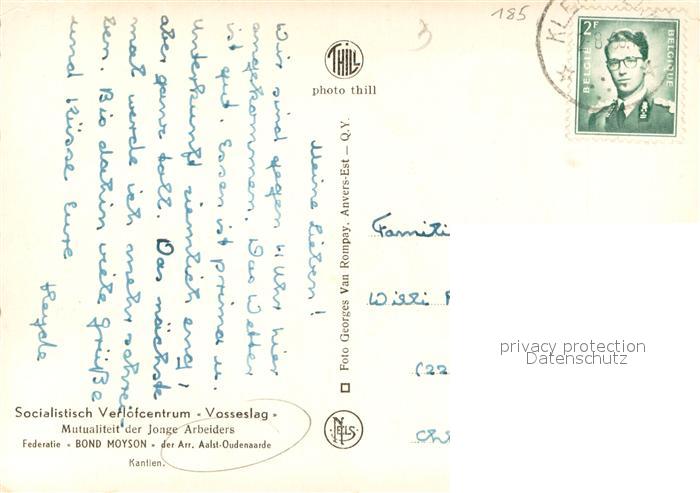 185
THILL
photo thill
KLE
2F
BELGIE
BELGIQUE
Meine Lieben!
Wir sind gegen 4 Uhr hier
angekommen. Das Wetter
ist gut. Essen ist prima u.
Unterkunft ziemlich eng!
aber ganz toll. Das nächste
mal werde ich mehr schrei-
ben. Bis dahin viele Grüße
und Küsse Eure
Foto Georges Van Rompay, Anvers-Est — Q.Y.
Familie
Willi
(22
NELS
privacy protection
Datenschutz
Socialistisch Verlofcentrum « Vosseslag »
Mutualiteit der Jonge Arbeiders
Federatie « BOND MOYSON » der Arr. Aalst-Oudenaarde
Kantien.